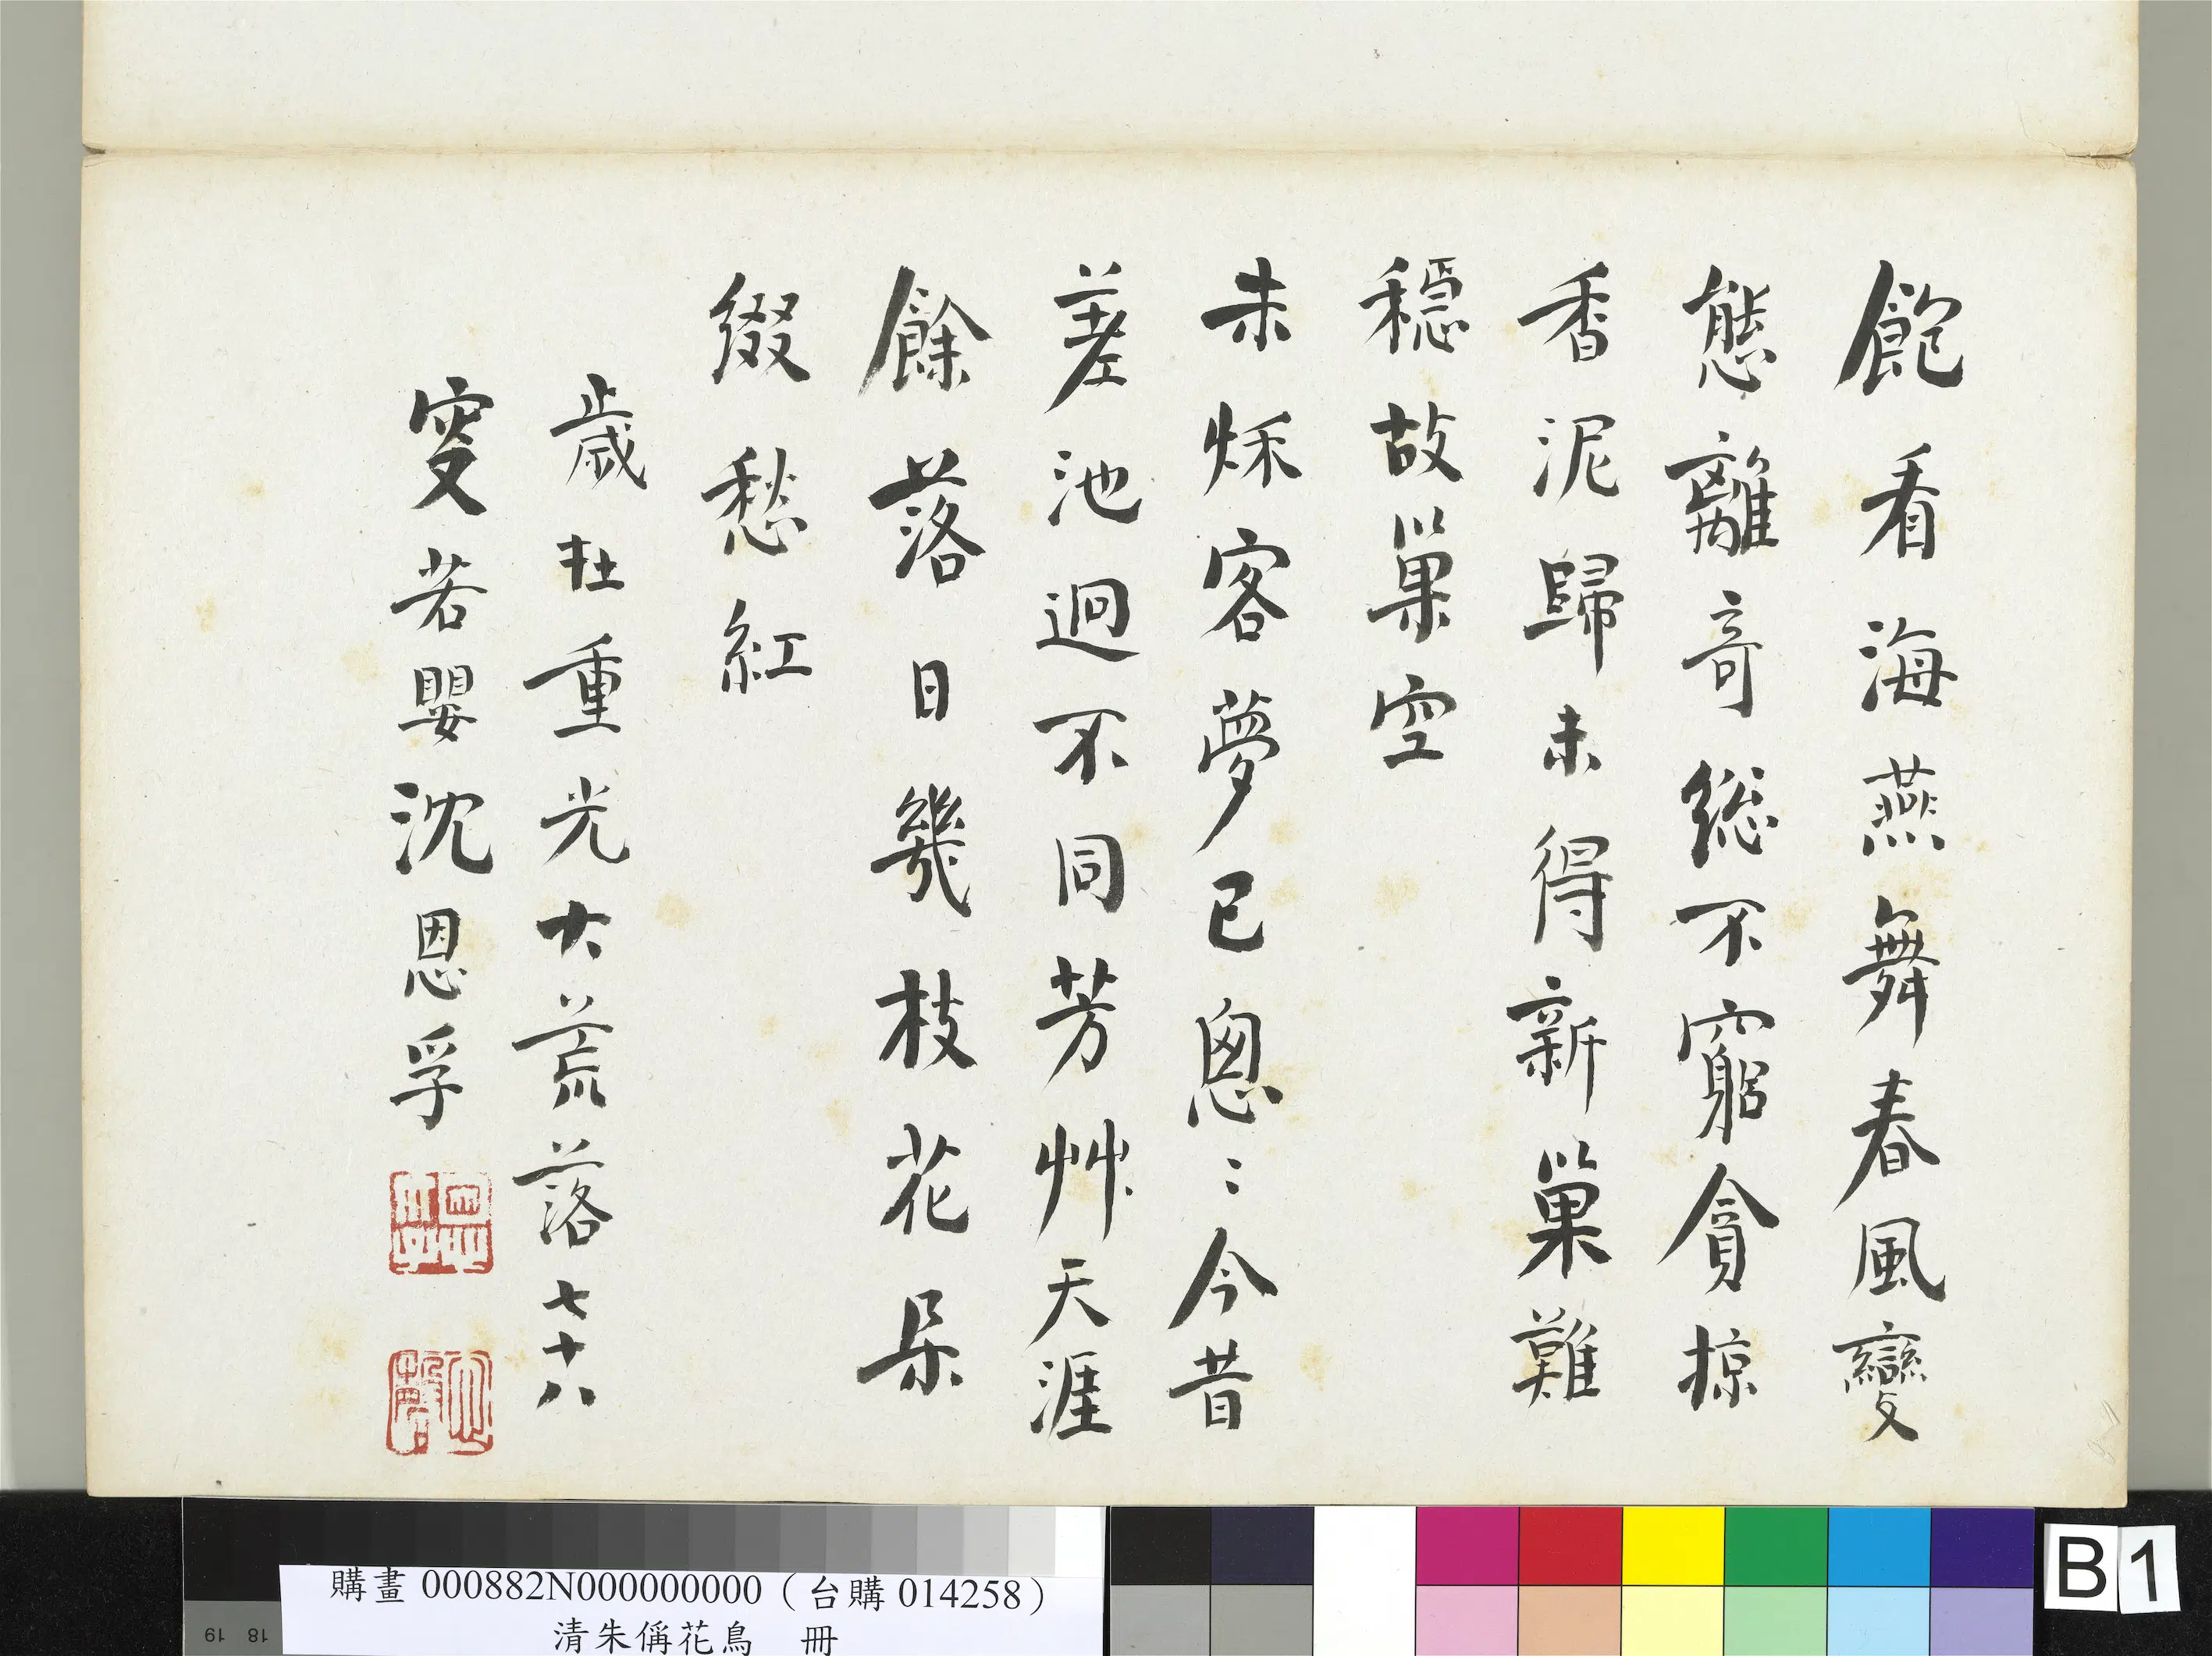 飽看海燕舞春風變
態離奇總不窮貪掠
香泥歸未得新巢難
穩故巢空
未穌客夢已恖〻今昔
差池迥不同芳艸天涯
餘落日幾枝花朵
綴愁紅
歲在重光大荒落七十八
叟若嬰沈恩孚
購畫 000882N000000000（台購 014258）
清朱偁花鳥 冊
19 18
B 1